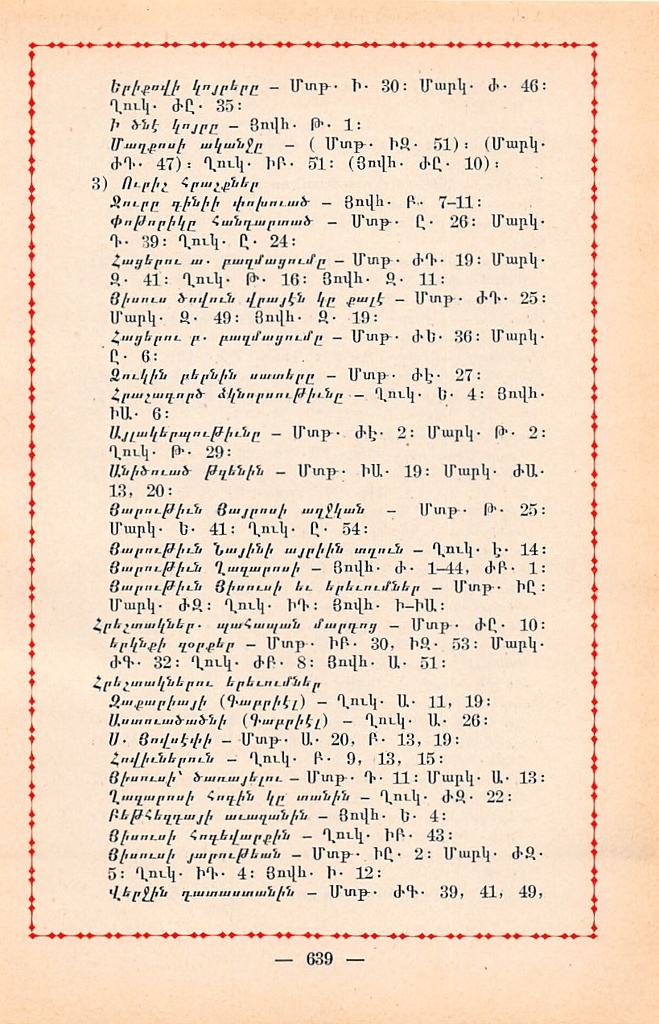 Երիքովի կոյրերը – Մտթ․ Ի․ 30։ Մարկ․ Ժ․ 46։
Ղուկ․ ԺԸ․ 35։
Ի ծնէ կոյրը – Յովհ․ Թ․ 1։
Մաղքոսի ականջը – ( Մտթ․ ԻԶ․ 51)։ (Մարկ․
ԺԴ․ 47)։ Ղուկ․ ԻԲ․ 51։ (Յովհ․ ԺԸ․ 10)։
3) Ուրիշ Հրաշքներ
Ջուրը գինիի փոխուած – Յովհ․ Բ․ 7–11։
Փոթորիկը Հանդարտած – Մտթ․ Ը․ 26։ Մարկ․
Դ․ 39։ Ղուկ․ Ը․ 24։
Հացերու ա․ բազմացումը – Մտթ․ ԺԴ․ 19։ Մարկ․
Զ․ 41։ Ղուկ․ Թ․ 16։ Յովհ․ Զ․ 11։
Յիսուս ծովուն վրայէն կը քալէ – Մտթ․ ԺԴ․ 25։
Մարկ․ Զ․ 49։ Յովհ․ Զ․ 19։
Հացերու բ․ բազմացումը – Մտթ․ ԺԵ․ 36։ Մարկ․
Ը․ 6։
Ձուկին բերնին սատերը – Մտթ․ ԺԷ․ 27։
Հրաշագործ ձկնորսութիւնը – Ղուկ․ Ե․ 4։ Յովհ․
ԻԱ․ 6։
Այլակերպութիւնը – Մտթ․ ԺԷ․ 2։ Մարկ․ Թ․ 2։
Ղուկ․ Թ․ 29։
Անիծուած թզենին – Մտթ․ ԻԱ․ 19։ Մարկ․ ԺԱ․
13, 20։
Յարութիւն Յայրոսի աղջկան – Մտթ․ Թ․ 25։
Մարկ․ Ե․ 41։ Ղուկ․ Ը․ 54։
Յարութիւն Նայինի այրիին տղուն – Ղուկ․ Է․ 14։
Յարութիւն Ղազարոսի – Յովհ․ Ժ․ 1–44, ԺԲ․ 1։
Յարութիւն Յիսուսի եւ երեւումներ – Մտթ․ ԻԸ։
Մարկ․ ԺԶ։ Ղուկ․ ԻԴ։ Յովհ․ Ի–ԻԱ։
Հրեշտակներ․ պահապան մարդոց – Մտթ․ ԺԸ․ 10։
երկնքի զօրքեր – Մտթ․ ԻԲ․ 30, ԻԶ․ 53։ Մարկ․
ԺԳ․ 32։ Ղուկ․ ԺԲ․ 8։ Յովհ․ Ա․ 51։
Հրեշտակներու երեւումներ
Զաքարիայի (Գաբրիէլ) – Ղուկ․ Ա․ 11, 19։
Աստուածածնի (Գաբրիէլ) – Ղուկ․ Ա․ 26։
Ս․ Յովսէփի – Մտթ․ Ա․ 20, Բ․ 13, 19։
Հովիւներուն – Ղուկ․ Բ․ 9, 13, 15։
Յիսուսի՝ ծառայելու – Մտթ․ Դ․ 11։ Մարկ․ Ա․ 13։
Ղազարոսի Հոգին կը տանին – Ղուկ․ ԺԶ․ 22։
Բեթհեզդայի աւազանին – Յովհ․ Ե․ 4։
Յիսուսի Հոգեվարքին – Ղուկ․ ԻԲ․ 43։
Յիսուսի յարութեան – Մտթ․ ԻԸ․ 2։ Մարկ․ ԺԶ․
5։ Ղուկ․ ԻԴ․ 4։ Յովհ․ Ի․ 12։
Վերջին դատաստանին – Մտթ․ ԺԳ․ 39, 41, 49,
— 639 —